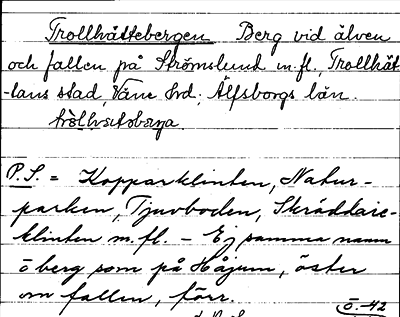 Trollhättebergen Berg vid älven
och fallen på Strömslund m.fl., Trollhät-
tans stad, Väne hrd, Älfsborgs län.
P.S. = Kopparklinten, Natur-
parken, Tjuvboden, Skräddare-
klinten m.fl. – Ej samma namn
o berg som på Håjum, öster
om fallen, förr.
Ö. -42